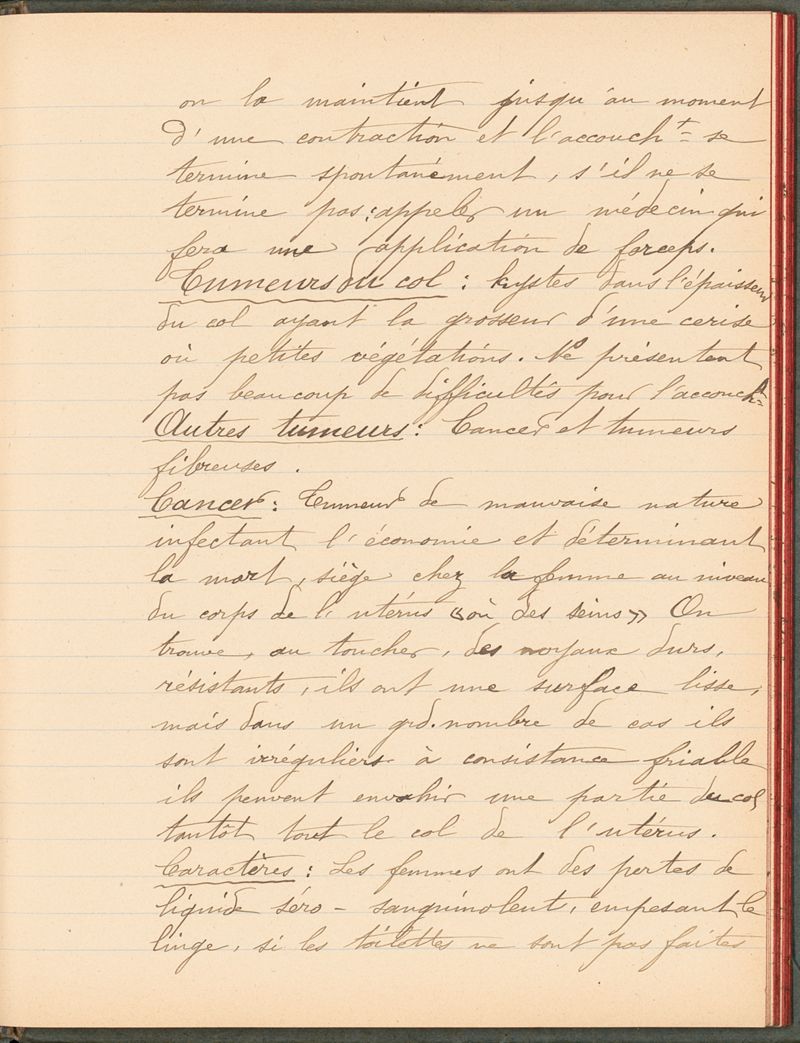 on la maintient jusqu'au moment
d'une contraction et l'accouch.t se
termine spontanément, s'il ne se
termine pas: appeler un médecin qui
fera une application de forceps.
Tumeurs du col : kystes dans l'épaisseur
du col ayant la grosseur d'une cerise
où petites végétations. Ne présentent
pas beaucoup de difficultés pour l'accouch.t
Autres tumeurs : Cancer et tumeurs
fibreuses .
Cancer : Tumeur de mauvaise nature
infectant l'économie et déterminant
la mort, siège chez la femme au niveau
du corps de l'utérus « où des seins » On
trouve, au toucher, des noyaux durs,
résistants, ils ont une surface lisse,
mais dans un grd. nombre de cas ils
sont irréguliers à consistance friable
ils peuvent envahir une partie du col
tantôt tout le col de l'utérus .
Caractères : Les femmes ont des pertes de
liquide séro - sanguinolent, empesant le
linge, si les toilettes ne sont pas faites